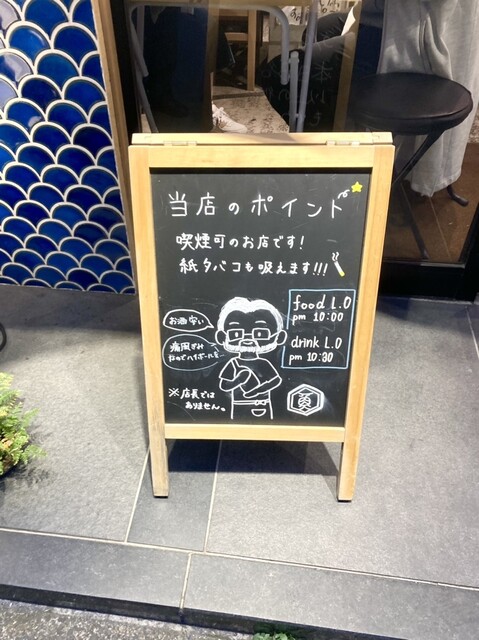 当店のポイント
喫煙可のお店です!
紙タバコも吸えます!!!
お酒安い
痛風ぎみ
なのでハイボールを…
※店長では
ありません。
food L.O
pm 10:00
drink L.O
pm 10:30